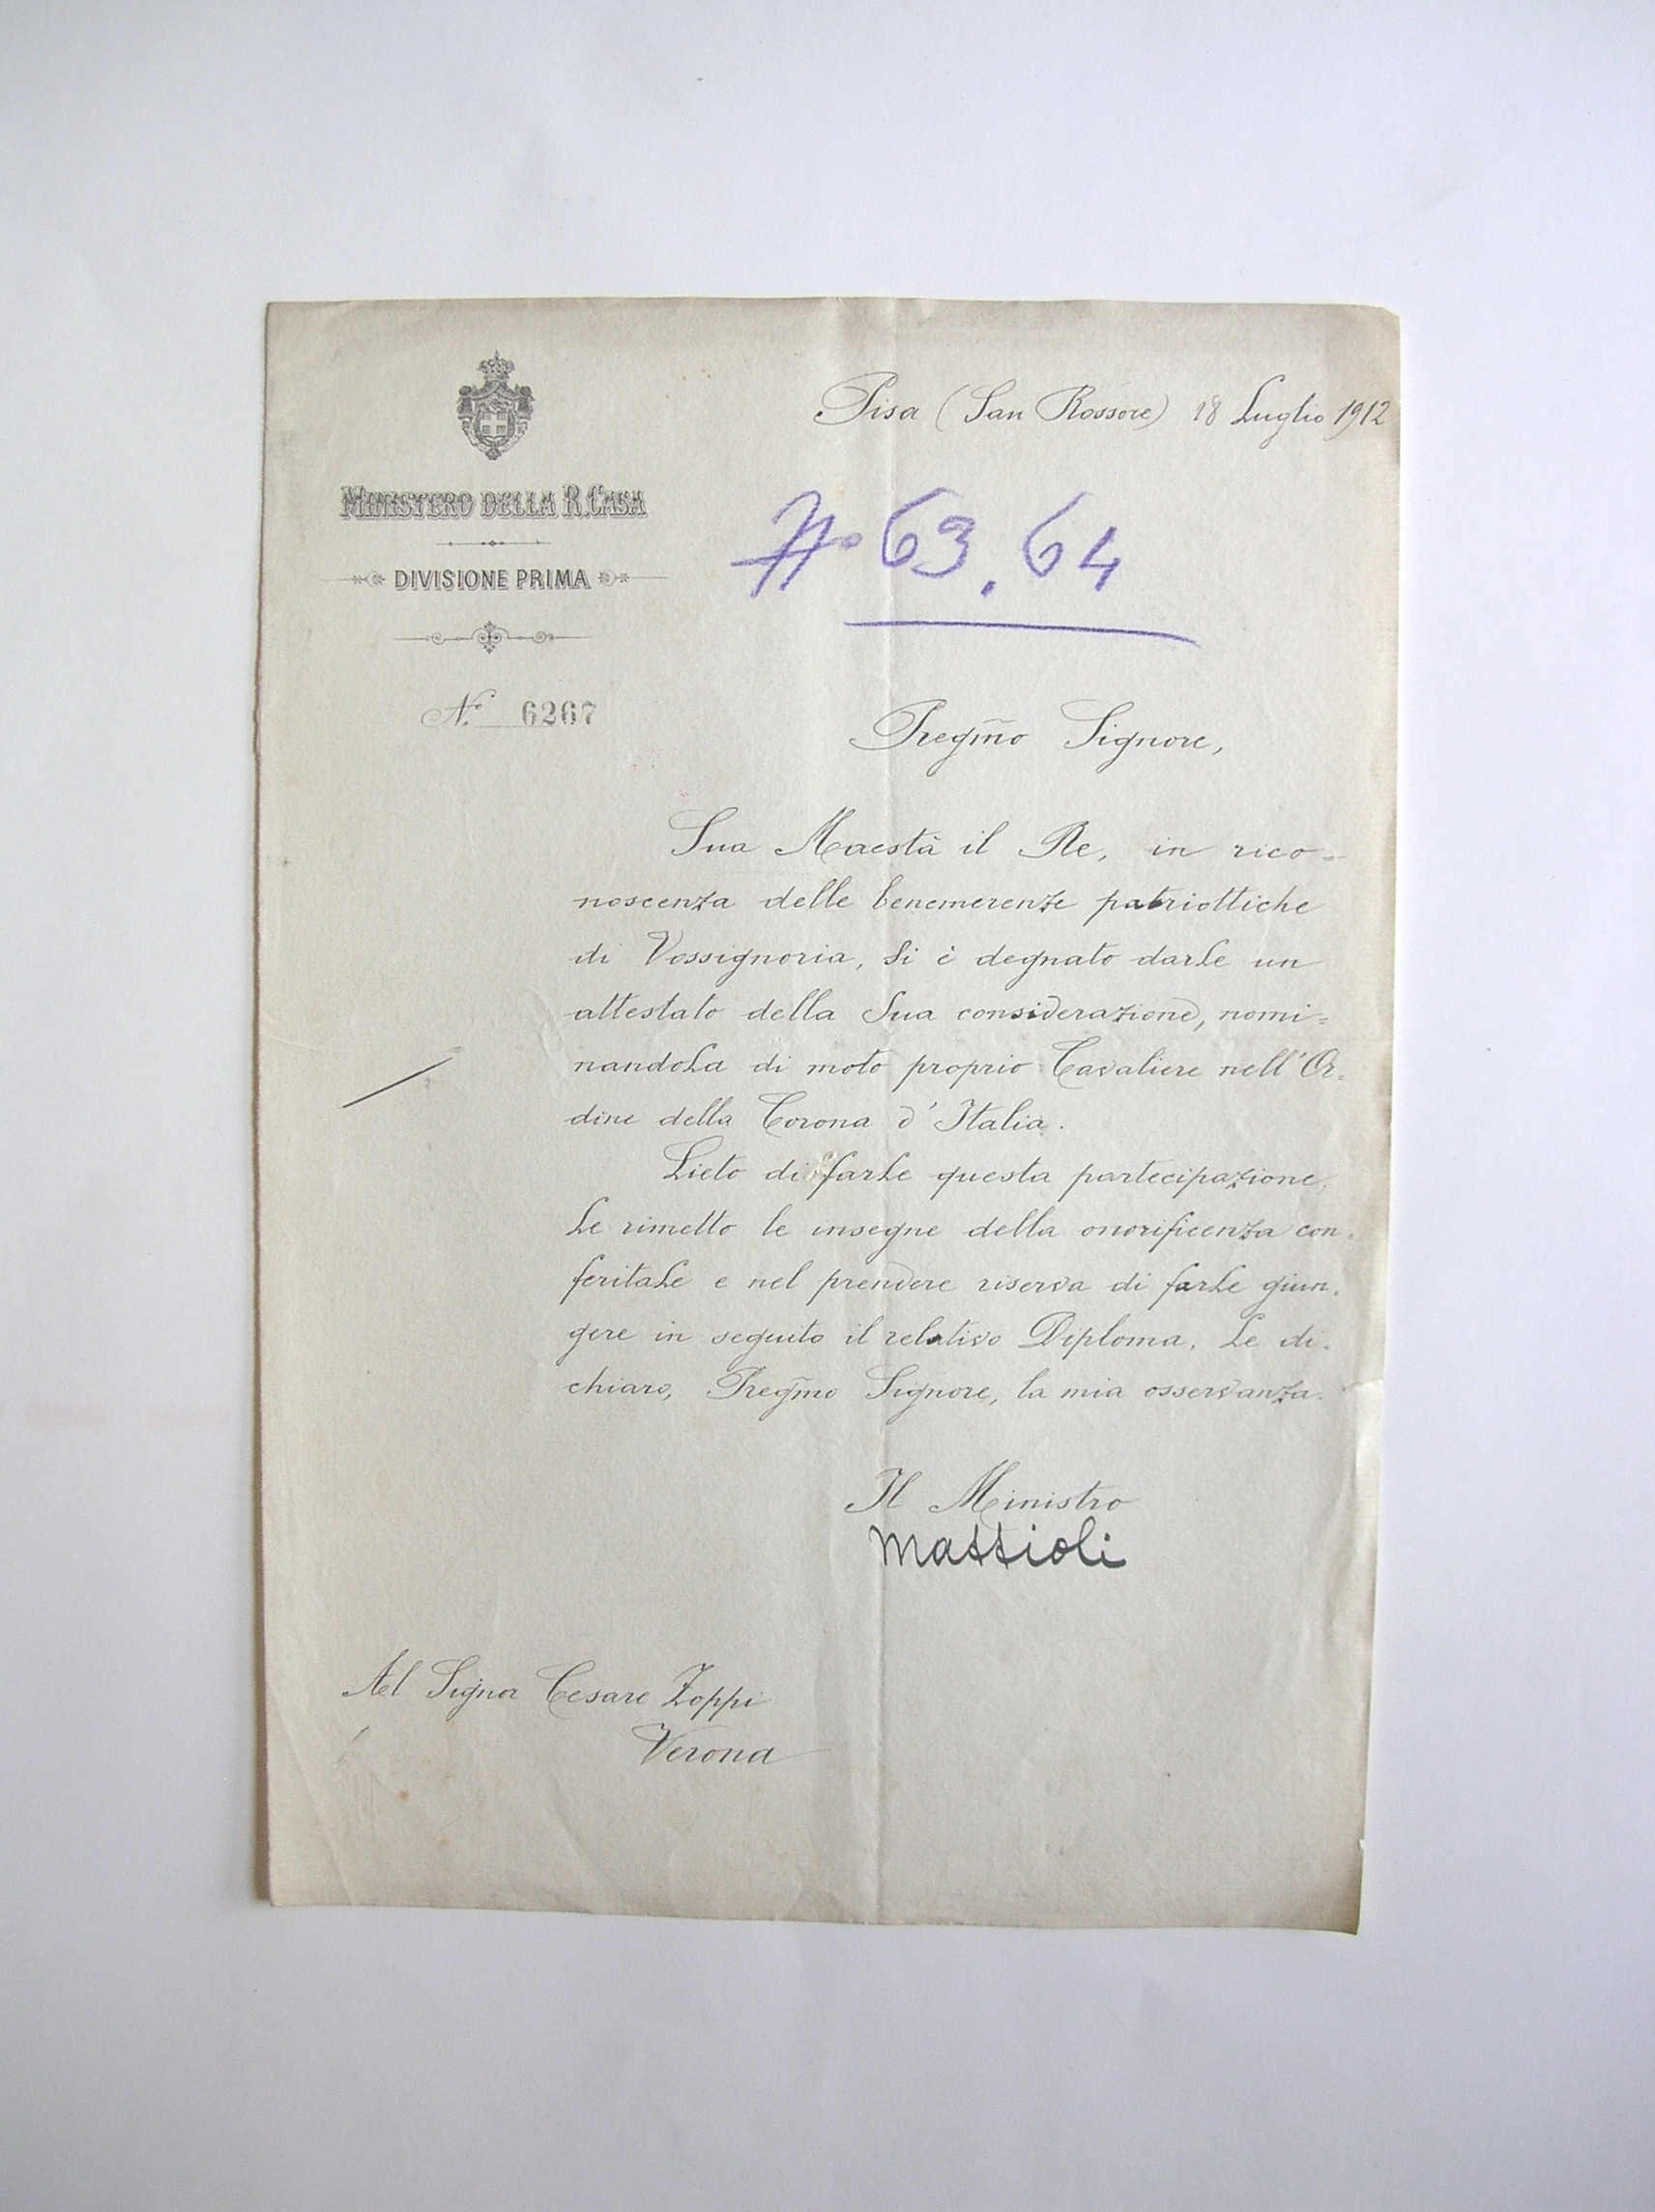 Pisa (San Rossore) 18 Luglio 1912
MINISTERO DELLA R. CASA
DIVISIONE PRIMA
No 63.64
N.° 6267
Pregm̃o Signore,
Sua Maestà il Re, in rico=
noscenza delle benemerenze patriottiche
di Vossignoria, Si è degnato darLe un
attestato della Sua considerazione, nomi=
nandoLa di moto proprio Cavaliere nell'Or=
dine della Corona d'Italia.
Lieto di farLe questa partecipazione,
Le rimetto le insegne della onorificenza con=
feritaLe e nel prendere riserva di farLe giun=
gere in seguito il relativo Diploma, Le di=
chiaro, Pregm̃o Signore, la mia osservanza.
Il Ministro
Mattioli
Al Signor Cesare Zoppi
Verona